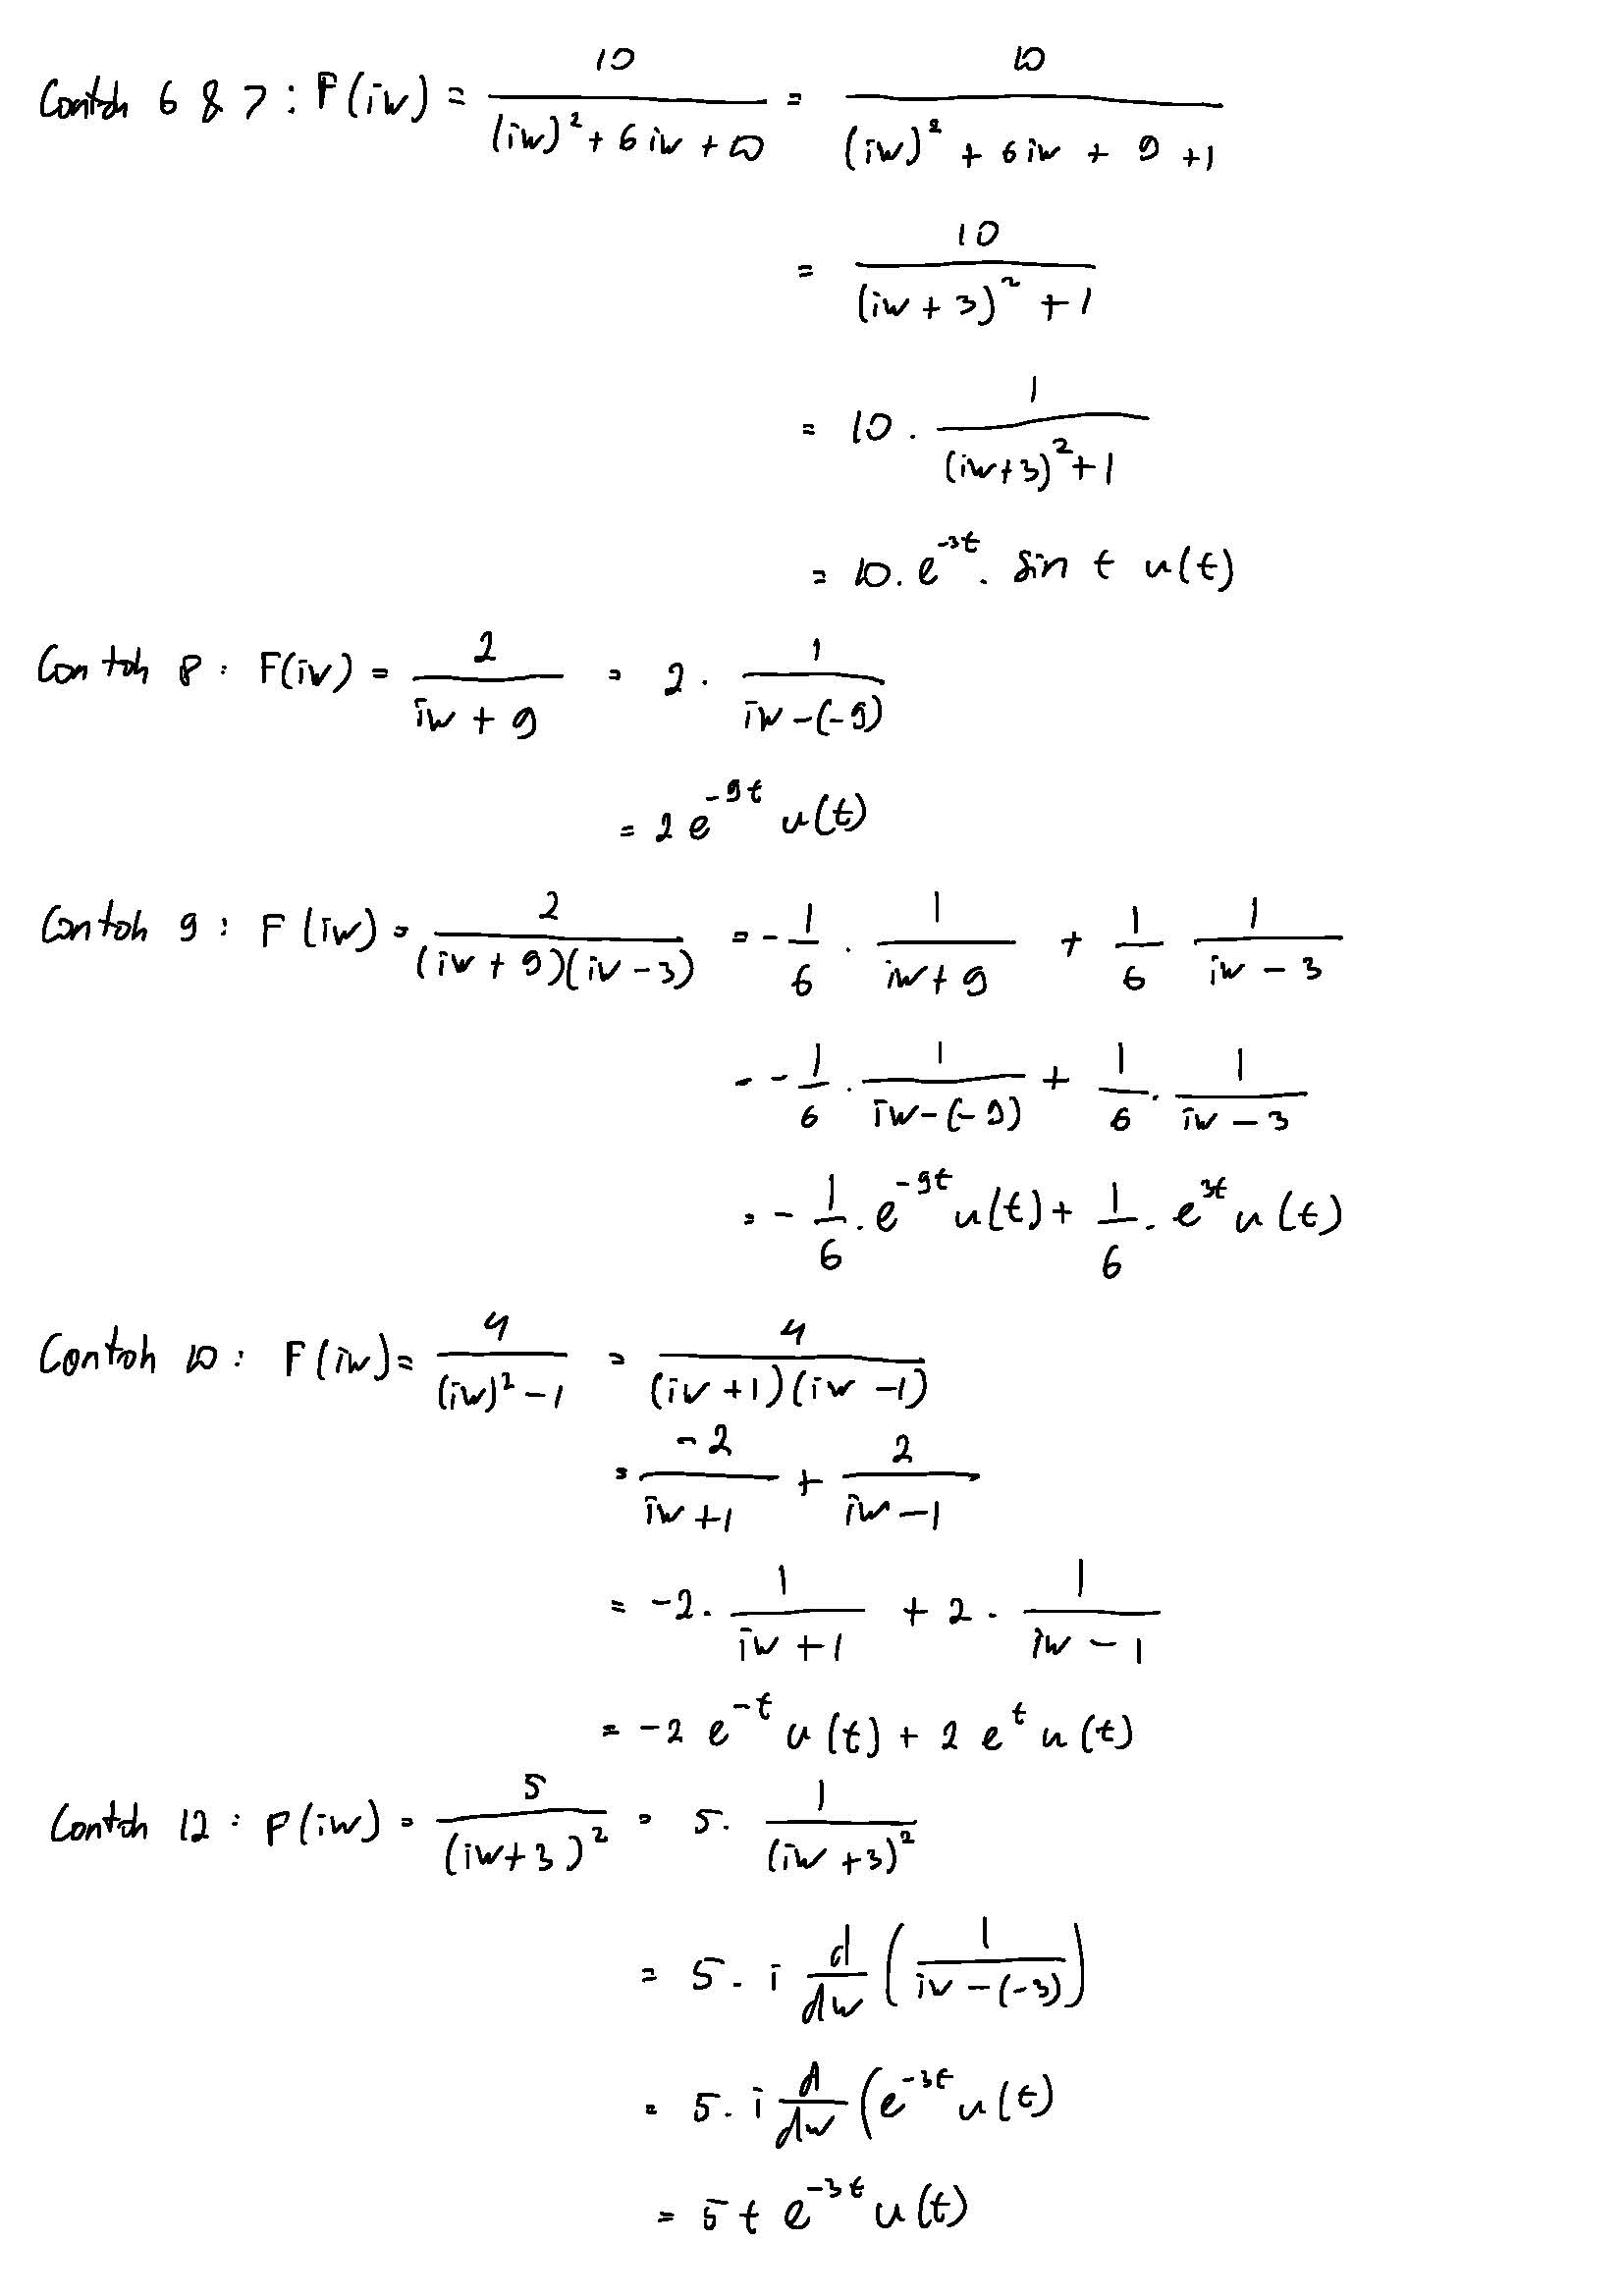 Contoh 6 & 7 : F(iw) = 10 / ((iw)² + 6iw + 10) = 10 / ((iw)² + 6iw + 9 + 1)
= 10 / ((iw + 3)² + 1)
= 10 . 1 / ((iw+3)² + 1)
= 10 . e^(-3t) . sin t u(t)
Contoh 8 : F(iw) = 2 / (iw + 9) = 2 . 1 / (iw - (-9))
= 2 e^(-9t) u(t)
Contoh 9 : F(iw) = 2 / ((iw + 9)(iw - 3)) = - 1/6 . 1 / (iw + 9) + 1/6 1 / (iw - 3)
= - 1/6 . 1 / (iw - (-9)) + 1/6 . 1 / (iw - 3)
= - 1/6 . e^(-9t) u(t) + 1/6 . e^(3t) u(t)
Contoh 10 : F(iw) = 4 / ((iw)² - 1) = 4 / ((iw + 1)(iw - 1))
= -2 / (iw + 1) + 2 / (iw - 1)
= -2 . 1 / (iw + 1) + 2 . 1 / (iw - 1)
= -2 e^(-t) u(t) + 2 e^t u(t)
Contoh 12 : F(iw) = 5 / (iw+3)² = 5 . 1 / (iw + 3)²
= 5 . i d/dw (1 / (iw - (-3)))
= 5 . i d/dw (e^(-3t) u(t)
= 5 t e^(-3t) u(t)